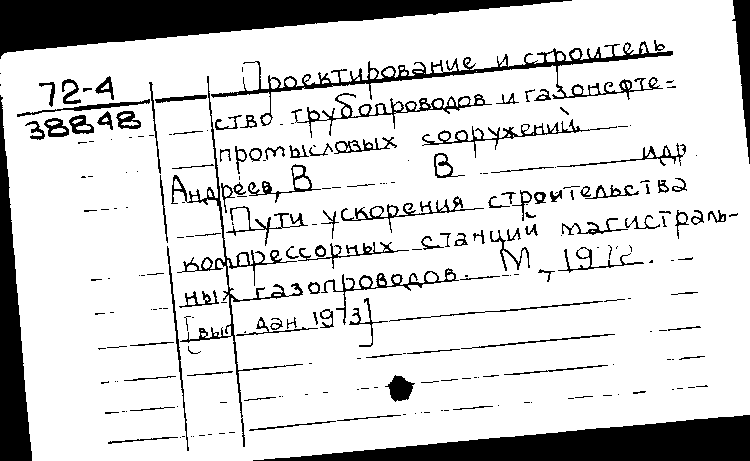 72-4
38848
Проектирование и строитель
ство трубопроводов и газонефте-
промысловых сооружений
Андреев, В В идр
Пути ускорения строительства
компрессорных станций магистраль-
ных газопроводов. М, 1972.
[вып. дан. 1973]